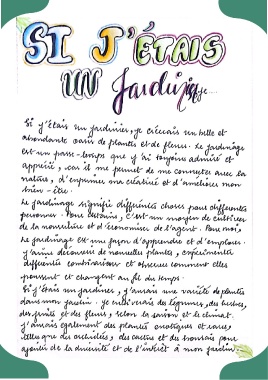 SI J'ÉTAIS
UN Jardinier...
Si j'étais un jardinier, je créerais une belle et
abondante oasis de plantes et de fleurs. Le jardinage
est un passe-temps que j'ai toujours admiré et
apprécié, car il me permet de me connecter avec la
nature, d'exprimer ma créativité et d'améliorer mon
bien-être.
Le jardinage signifie différentes choses pour différentes
personnes. Pour certains, c'est un moyen de cultiver
de la nourriture et d'économiser de l'argent. Pour moi,
le jardinage est une façon d'apprendre et d'explorer.
J'aime découvrir de nouvelles plantes, expérimenter
différentes combinaisons et observer comment elles
poussent et changent au fil du temps.
Si j'étais un jardinier, j'aurais une variété de plantes
dans mon jardin. Je cultiverais des légumes, des herbes,
des fruits et des fleurs, selon la saison et le climat.
J'aurais également des plantes exotiques et rares,
telles que des orchidées, des cactus et des bonsaïs pour
ajouter de la diversité et de l'intérêt à mon jardin.